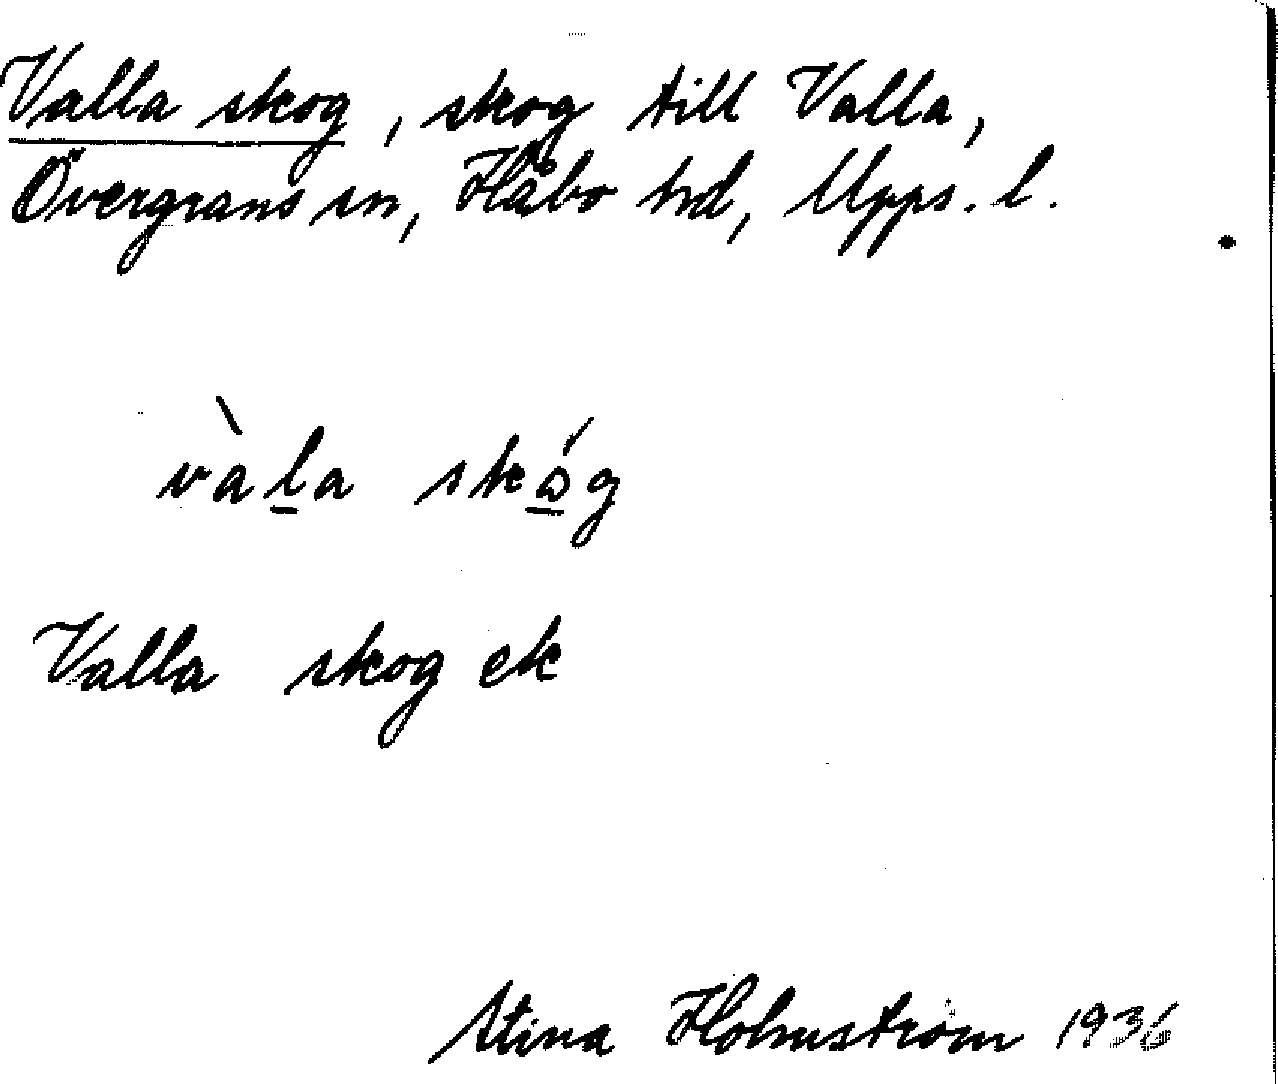 Valla skog, skog till Valla,
Övergrans sn, Håbo hd, Upps. l.
vàl̲a skó̲g
Valla skog ek
Stina Holmström 1936